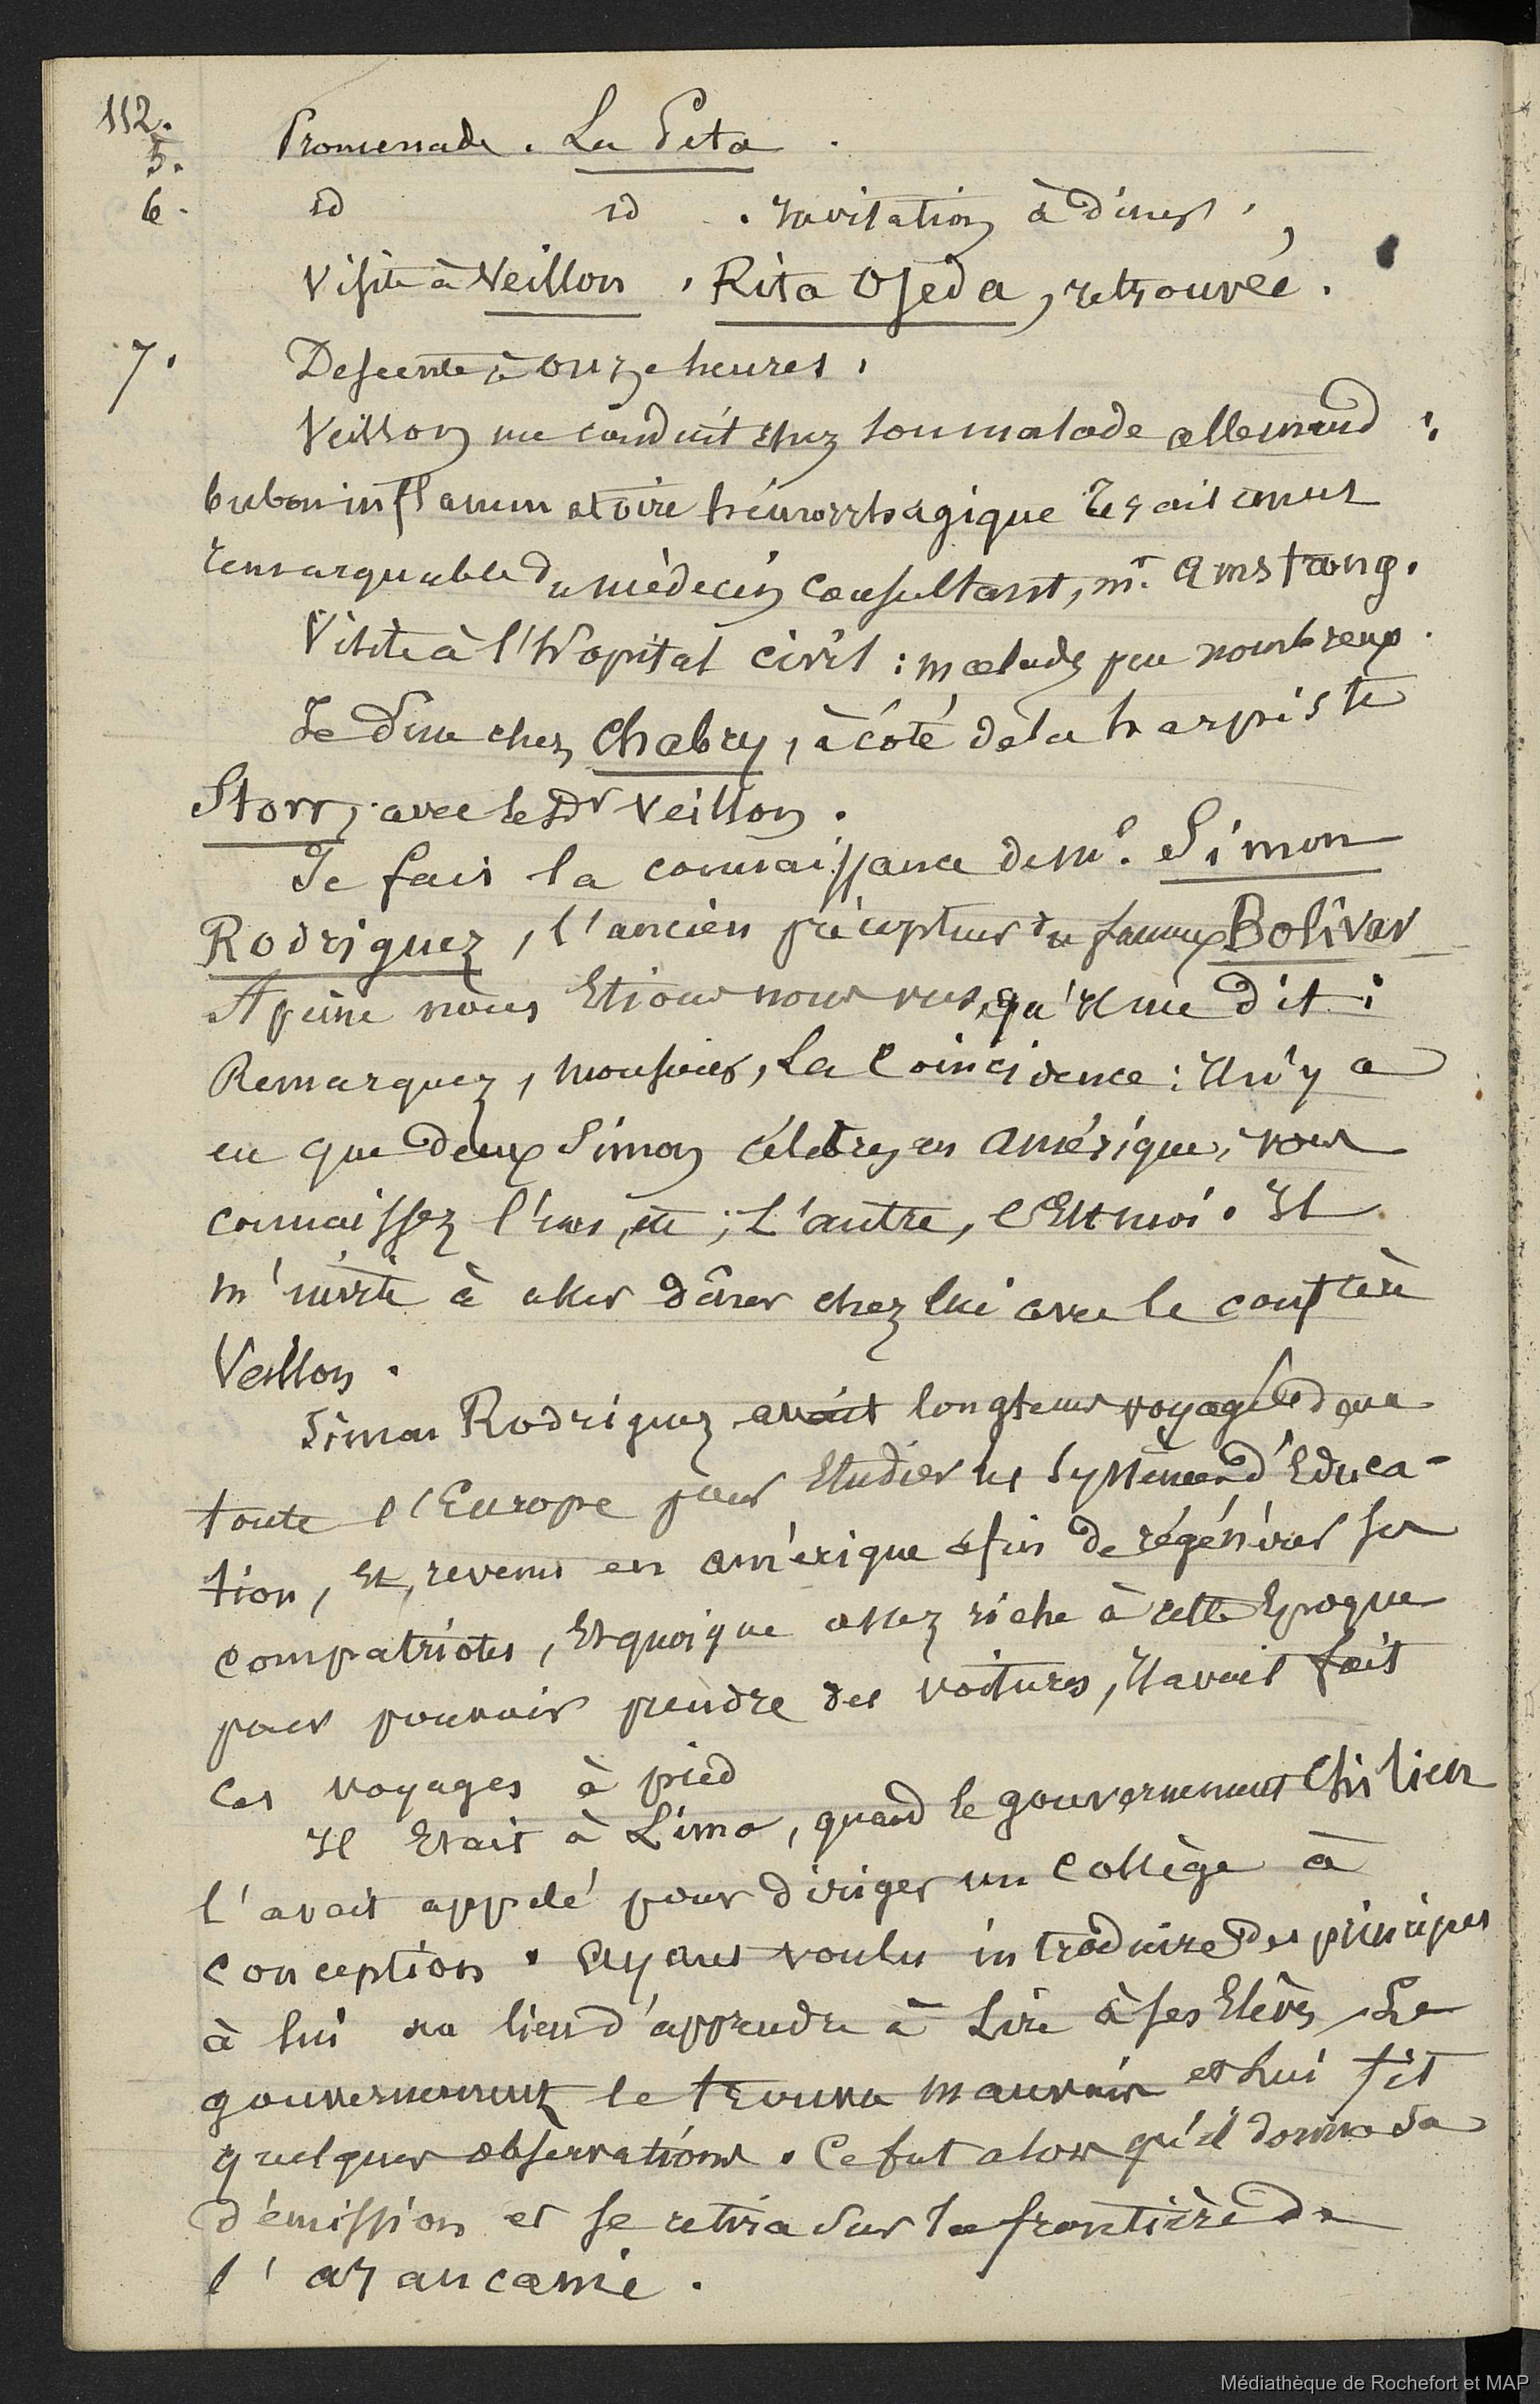 112.
5. Promenade. La Peta.
6. id id. Invitation à diner,
Visite à Veillon, Rita Ojeda, retrouvée.
7. Descente à onze heures,
Veillon me conduit chez son malade allemand :
bubon inflammatoire hémorrhagique
remarquable du médecin consultant, mr. Amstrong.
Visite à l'hopital civil : malades peu nombreux.
Je dine chez Chabry, à côté de la harpiste
Storr, avec le Dr Veillon.
Je fais la connaissance de Mr. Simon
Rodriguez, l'ancien précepteur du fameux Bolivar
A peine nous etions nous vus, qu'il me dit :
Remarquez, monsieur, la Coincidence : Il n'y a
eu que deux Simon célebres en Amérique, vous
connaissez l'un, ; L'autre, c'Est moi. Il
m'invite à aller dîner chez lui avec le confrère
Veillon.
Simon Rodriguez avait longtems voyagé dans
toute l'Europe pour Etudier les systèmes d'Educa-
tion, Et, revenu en amérique afin de régénérer ses
compatriotes, Et quoique assez riche à cette Epoque
pour pouvoir prendre des voitures, Il avait fait
ces voyages à pied
Il Etait à Lima, quand le gouvernement Chilien
l'avait appelé pour diriger un Collège à
Conception. Ayant voulu introduire des principes
à lui au lieu d'apprendre à Lire à ses Elèves, Le
gouvernement le trouva mauvais et Lui fit
quelques observations. Ce fut alors qu'il donna sa
démission et se retira sur la frontière de
l'araucanie.
Médiathèque de Rochefort et MAP